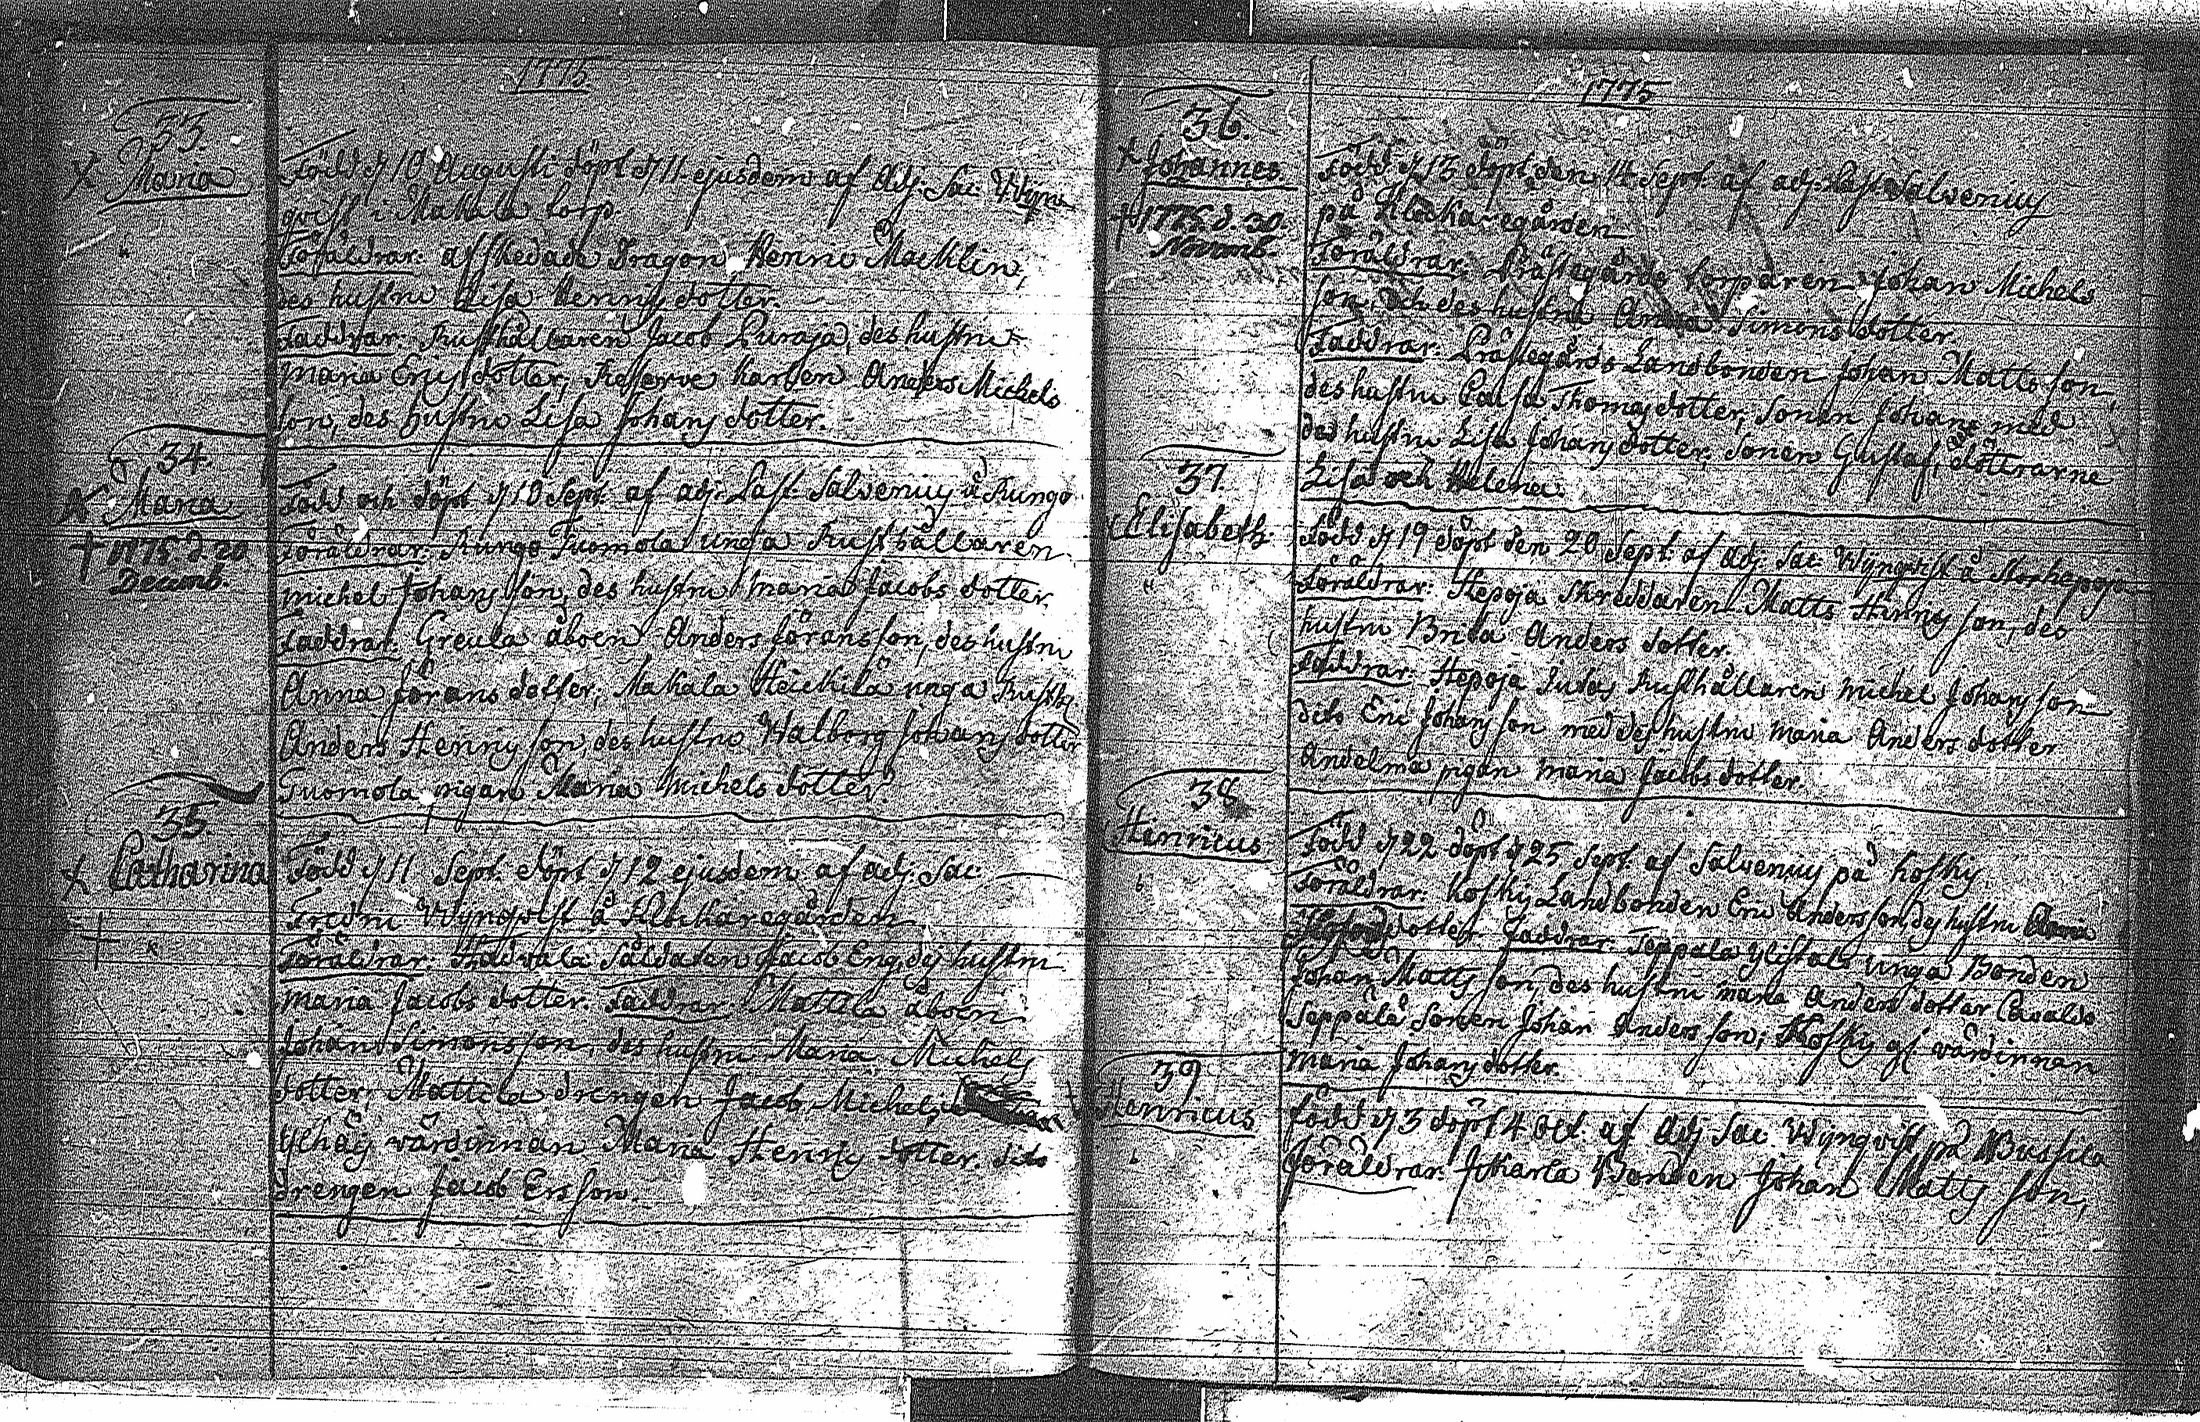 1775
33.
Maria
Född d 10 Augusti döpt d 11 ejusdem af Adj. Sac. Wynqvist
i Makala torp.
Föräldrar: afskedade Dragon Henric Macklin,
des hustru Lisa Henrics dotter.
Faddrar: Rusthållaren Jacob Puraja, des hustru
Maria Erics dotter, Reserve karlen Anders Michels
son, des hustru Lisa Johans dotter.
34.
Maria
† 1775. d. 20
Decemb.
Född och döpt d 10 Sept. af adj. Past. Salvenius å Rungo
Föräldrar: Rungo Tuomola unga Rusthållaren
Michel Johans son, des hustru Maria Jacobs dotter.
Faddrar: Greula åboen Anders Görans son, des hustru
Anna Görans dotter; Makala Heickilä unga Rusth.
Anders Henrics son, des hustru Walborg Johans dotter
Tuomola pigan Maria Michels dotter.
35.
Catharina
Född d 11 Sept. döpt d 12 ejusdem af adj. Sac.
Fredric Wynqvist å Klockaregården
Föräldrar: Soldaten Jacob Eng, des hustru
Maria Jacobs dotter. Faddrar: Mattila åboen
Johan Simons son, des hustru Maria Michels
dotter; Mattila drengen Jacob Michels
värdinnan Maria Henrics dotter. dito
drengen Jacob Ersson.
1775
36.
Johannes
† 1775. d. 30.
Novemb.
Född d 13 döpt den 14 Sept. af adj. Past. Salvenius
på Klockaregården
Föräldrar: Prästegårds torparen Johan Michels
son och des hustru Anna Simons dotter.
Faddrar: Prästegårds Landbonden Johan Matts son,
des hustru Caisa Thomas dotter, Sonen Johan med
des hustru Lisa Johans dotter; Sonen Gustaf, dötrarne
Lisa och Helena.
37.
Elisabeth
Född d 19 döpt den 20 Sept. af Adj. Sac. Wynqvist å Storhepoja
Föräldrar: Hepoja Skreddaren Matts Henrics son, des
hustru Brita Anders dotter.
Faddrar: Hepoja Rusthållaren Michel Johans son
dito Eric Johans son med des hustru Maria Anders dotter
Andelma pigan Maria Jacobs dotter.
38
Henricus
Född d 22 döpt d 25 Sept. af Salvenius på Koskis.
Föräldrar: Koskis Landbonden Eric Anders son, des hustru Maria
dotter. Faddrar: Seppälä Ylistalo unga Bonden
Johan Matts son, des hustru Maria Anders dotter
Seppälä Sonen Johan Anders son; Koskis gl. värdinnan
Maria Johans dotter.
39
Henricus
Född d 3 döpt 4 Oct. af Adj. Sac. Wynqvist på Bussila
Föräldrar: Jokarla Bonden Johan Matts son,